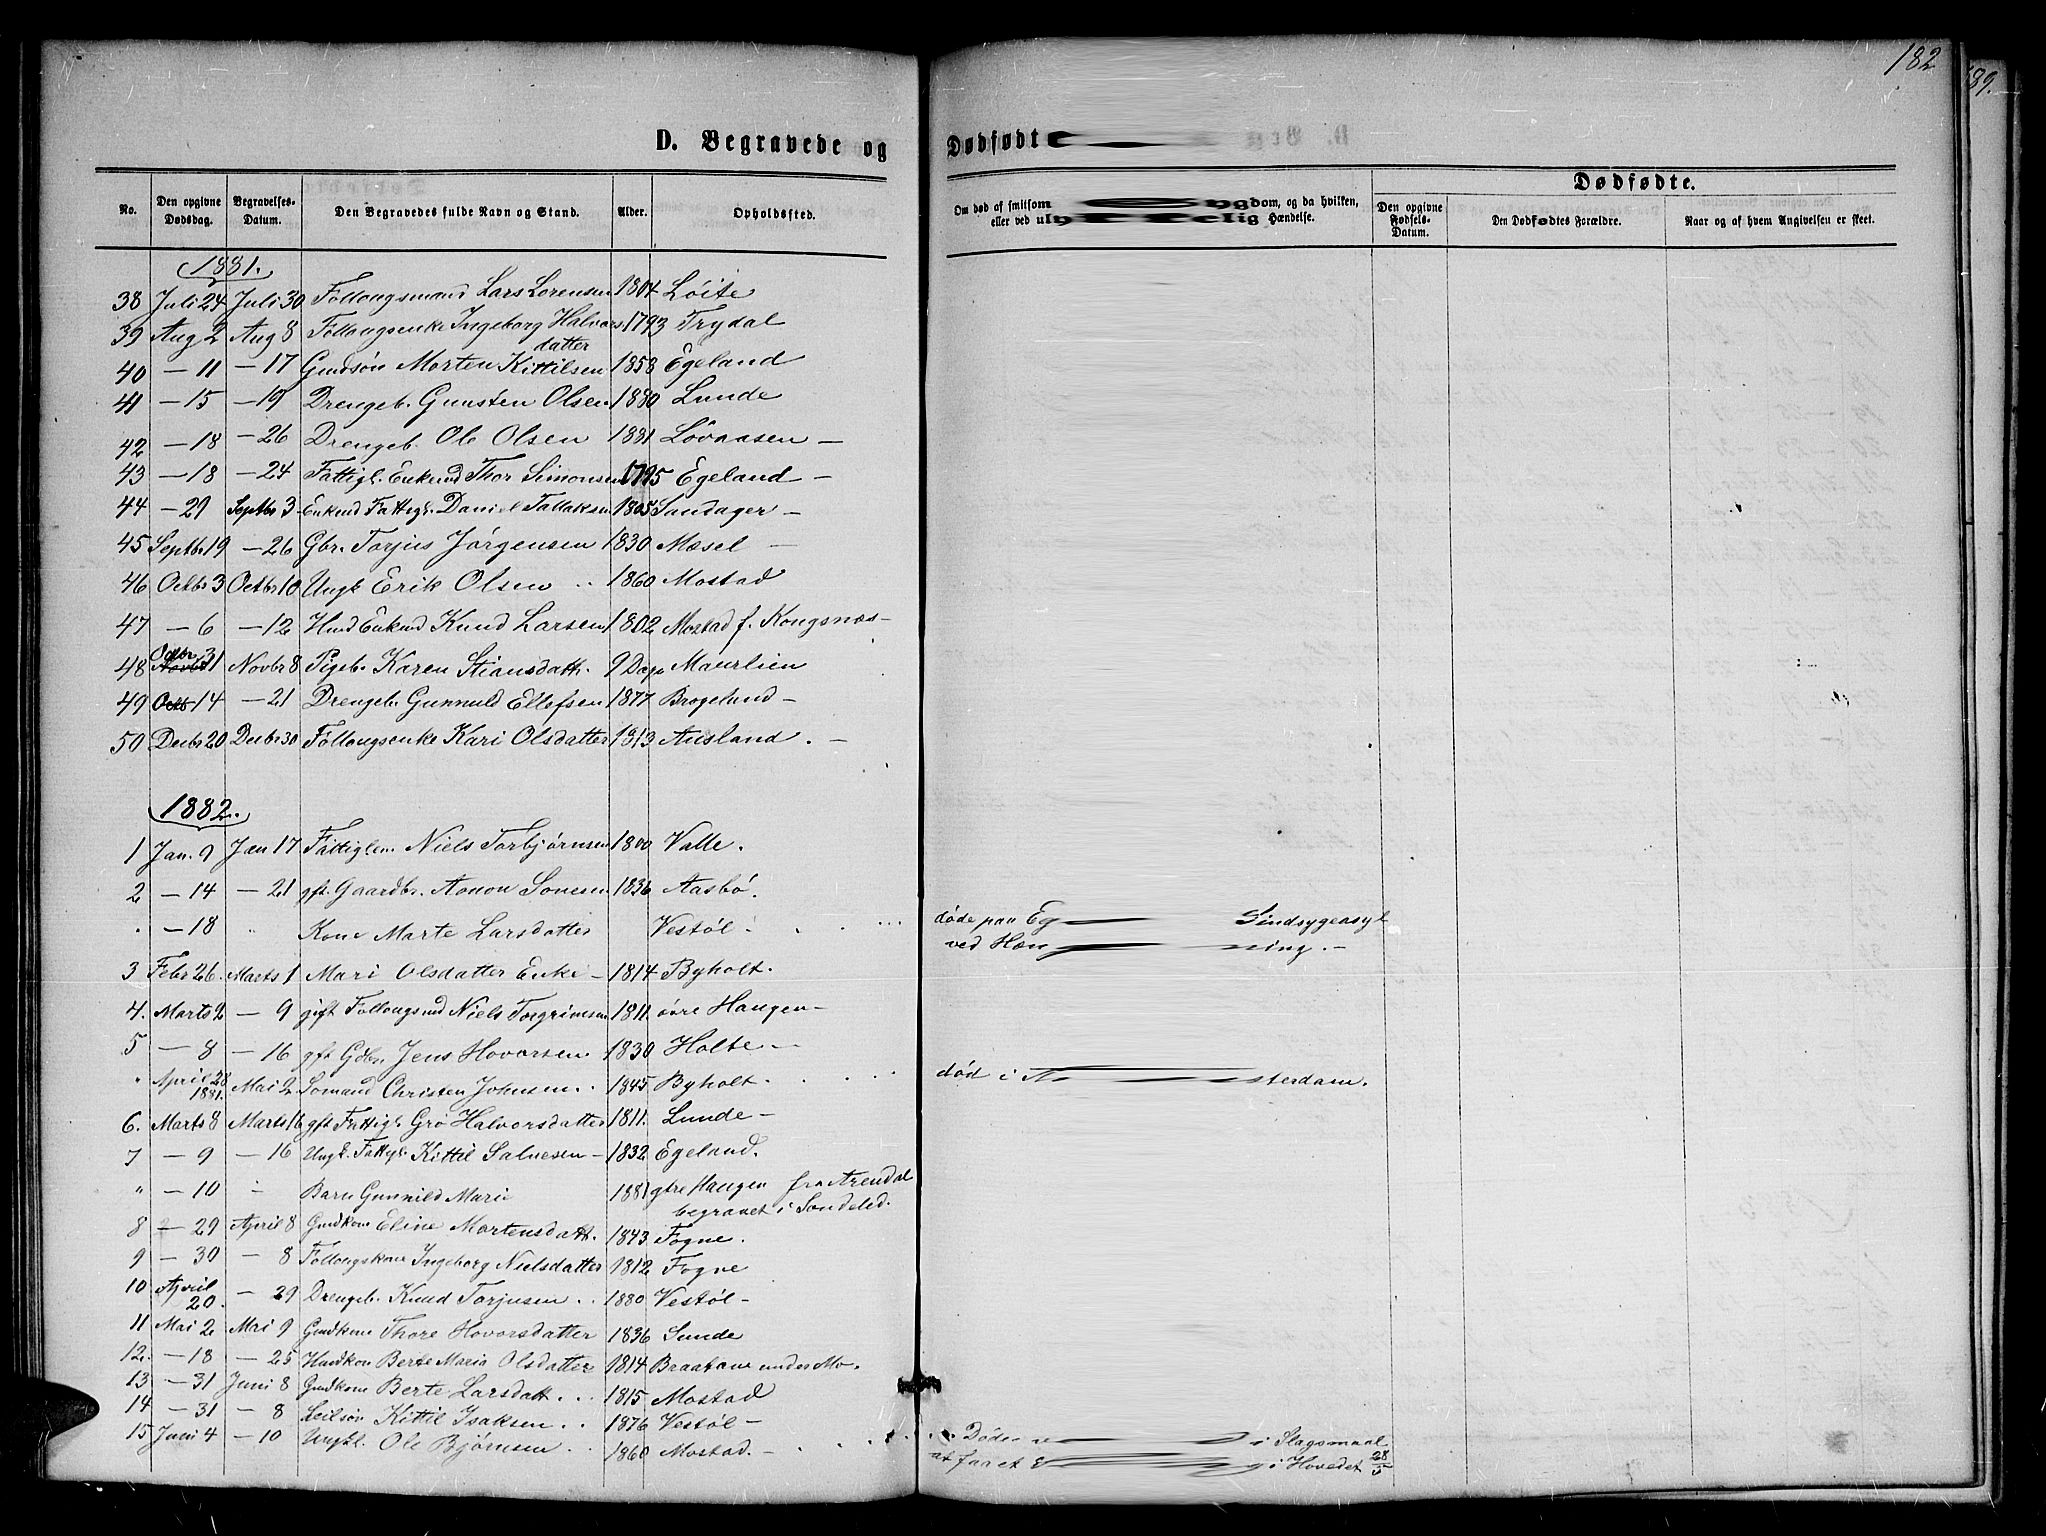 182
89.
D. Begravede og Dødfødte
No. Den opgivne Dødsdag. Begravelses-Datum. Den Begravedes fulde Navn og Stand. Alder. Opholdssted. Om død af smitsom dom, og da hvilken, eller ved elig Hændelse. Dødfødte. Den opgivne Fødsels-Datum. Den Dødfødtes Forældre. Naar og af hvem Angivelsen er skeet.
1881.
38 Juli 24 Juli 30 Føllaugsmand Lars Lorensen 1804 Løite
39 Aug 2 Aug 8 Føllaugsenke Ingeborg Halvors 1793 Trydal
datter
40 — 11 — 17 Gmdsøn Morten Kittilsen 1858 Egeland
41 — 15 — 19 Drengeb. Gunsten Olsen 1880 Lunde
42 — 18 — 26 Drengeb. Ole Olsen 1881 Løvaasen —
43 — 18 — 24 Fattigl. Enkmd Thor Simonsen 1795 Egeland —
44 — 29 Septbr 3 Enkmd Fattigl. Daniel Tallaksen 1805 Sandager —
45 Septbr 19 — 26 Gbr. Torjus Jørgensen 1830 Mæsel —
46 Octbr 3 Octbr 10 Ungk Erik Olsen 1860 Mostad
47 — 6 — 12 Hmd Enkmd Knud Larsen 1802 Mostad f. Kongsnæs —
48 Octbr 31 Novbr 8 Pigeb. Karen Stiansdatt. 9 Dage Maurlien
49 14 — 21 Drengeb. Gunnuld Ellefsen 1877 Brogeland —
50 Decbr 20 Decbr 30 Føllaugsenke Kari Olsdatter 1813 Ausland. —
1882.
1 Jan. 9 Jan 17 Fattiglem Niels Torbjørnsen 1800 Valle.
2 — 14 — 21 gft. Gaardbr. Aanon Sonesen 1836 Aasbø.
" — 18 " Kone Marte Larsdatter Vestøl døde paa Eg Sindsygeasyl
ved Hæn ning. —
3 Febr 26. Marts 1 Mari Olsdatter Enke — 1814 Byholt.
4. Marts 2 — 9 gift Føllaugsmd Niels Torgrimsen 1811. øvre Haugen —
5 — 8 — 16 gft Gdbr. Jens Hovorsen 1830 Holte —
" April 28 1881. Mai 2 Sømand Christen Johnsen 1845 Byholt. død i sterdam.
6. Marts 8 Marts 16 gft Fattigl. Gro Halvorsdatter 1811. Lunde —
7 — 9 — 16 Ungk. Fattigl. Kittil Salvesen — 1832 Egeland.
" — 10 " Barn Gunnild Marie 1881 Haugen fra Arendal
begravet i Søndeled.
8 — 29 April 8 Gmdkone Eline Mortensdatt. 1843 Fogne.
9 — 30 — 8 Føllaugskone Ingeborg Nielsdatter 1812 Fogne
10 April 20. — 29 Drengeb. Knud Torjusen 1880 Vestøl —
11 Mai 2 Mai 9 Gmdkone Thore Hovorsdatter 1836 Sunde
12. — 18 — 25 Hmdkon Berte Maria Olsdatter 1814 Braatane under Mo.
13 — 31 Juni 8 Gmdkone Berte Larsdatt. 1815 Mostad
14 — 31 — 8 Leilsøn Kittil Isaksen 1876 Vestøl —
15 Juni 4 — 10 Ungkl. Ole Bjørnsen 1860 Mostad. — Døde i Slagsmaal
at faaet i Hovedet 28/5